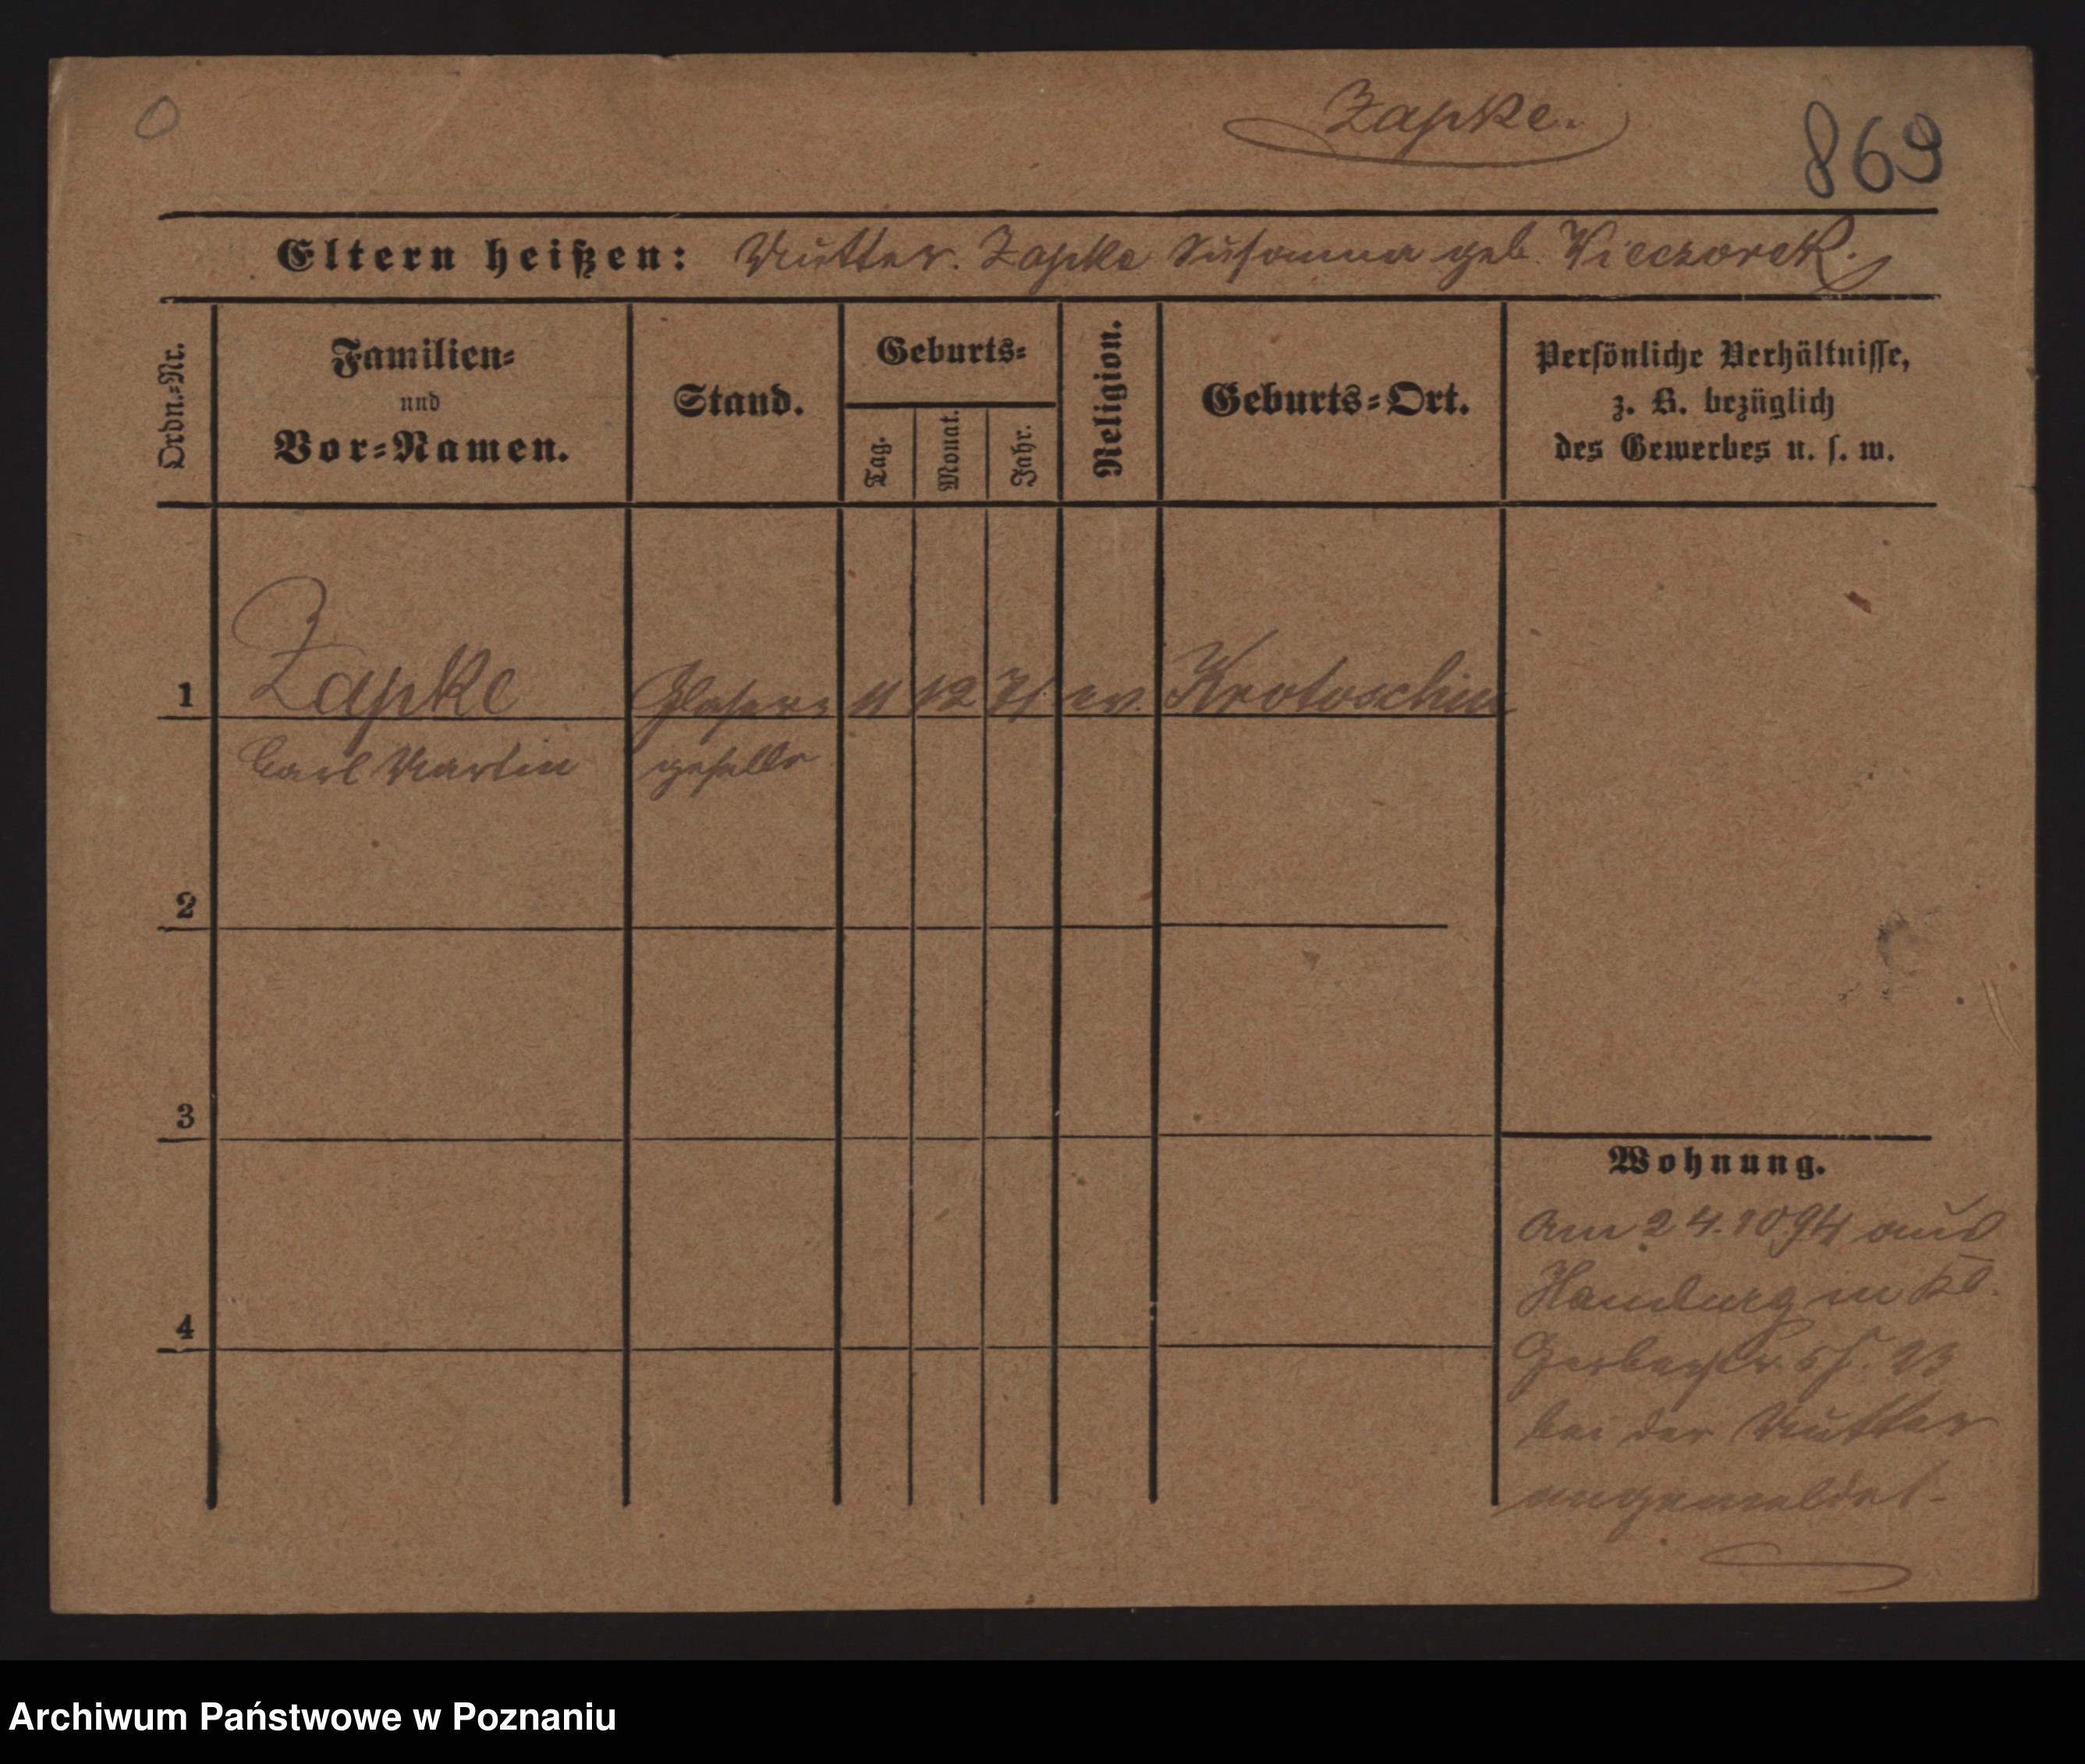 0
Zapke.
869
Eltern heißen: Mutter. Zapke Susanna geb. Wieczorek.
Ordn.=Nr.
Familien=
und
Vor=Namen.
Stand.
Geburts=
Tag.
Monat.
Jahr.
Religion.
Geburts=Ort.
Persönliche Verhältnisse,
z. B. bezüglich
des Gewerbes u. s. w.
1 Zapke Glaser= 11 12 71. ev. Krotoschin
Carl Martin geselle
2
3
4
Wohnung.
Am 2 4. 10 94 aus
Hamburg in Kl.
Gerberstr.
bei der Mutter
angemeldet.
Archiwum Państwowe w Poznaniu